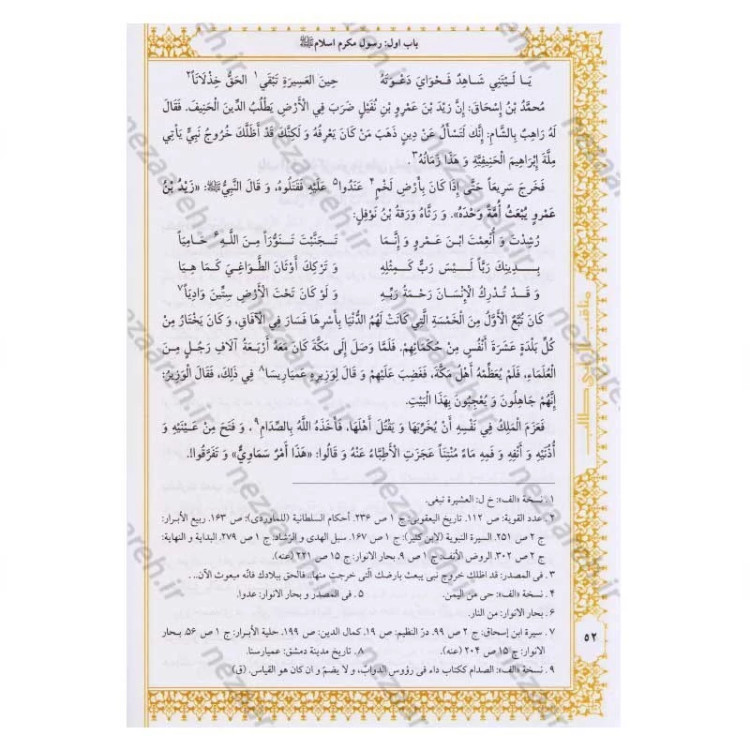 باب اول: رسول مکرم اسلام ﷺ
یَا لَیْتَنِي شَاهِدٌ فَحْوَايَ دَعْوَتَهُ حِینَ العَسِیرَةِ تَبْقَي۱ الحَقَّ خِذْلَاناً۲
مُحَمَّدُ بْنُ إِسْحَاقَ: إِنَّ زَیْدَ بْنَ عَمْرِو بْنِ نُفَیْلٍ ضَرَبَ فِي الْأَرْضِ یَطْلُبُ الدِّینَ الْحَنِیفَ. فَقَالَ
لَهُ رَاهِبٌ بِالشَّامِ: إِنَّكَ لَتَسْأَلُ عَنْ دِینٍ ذَهَبَ مَنْ كَانَ یَعْرِفُهُ وَ لَكِنَّكَ قَدْ أَظَلَّكَ خُرُوجُ نَبِيٍّ یَأْتِي
مِلَّةَ إِبْرَاهِیمَ الْحَنِیفِیَّةِ وَ هَذَا زَمَانُهُ۳.
فَخَرَجَ سَرِیعاً حَتَّی إِذَا كَانَ بِأَرْضِ لَخْمٍ۴ عَنَدُوا۵ عَلَیْهِ فَقَتَلُوهُ، وَ قَالَ النَّبِيُّ ﷺ: «زَیْدُ بْنُ
عَمْرٍو یُبْعَثُ أُمَّةً وَحْدَهُ». وَ رَثَاهُ وَرَقَةُ بْنُ نَوْفَلٍ:
رُشِدْتَ وَ أَنْعَمْتَ ابْنَ عَمْرٍو وَ إِنَّمَا تَجَنَّبْتَ تَنُّوراً مِنَ اللَّهِ۶ حَامِیَاً
بِدِینِكَ رَبّاً لَیْسَ رَبٌّ كَمِثْلِهِ وَ تَرْكِكَ أَوْثَانَ الطَّوَاغِي كَمَا هِیَا
وَ قَدْ تُدْرِكُ الْإِنْسَانَ رَحْمَةُ رَبِّهِ وَ لَوْ كَانَ تَحْتَ الْأَرْضِ سِتِّینَ وَادِیَاً۷
كَانَ تُبَّعٌ الْأَوَّلُ مِنَ الْخَمْسَةِ الَّتِي كَانَتْ لَهُمُ الدُّنْیَا بِأَسْرِهَا فَسَارَ فِي الْآفَاقِ، وَ كَانَ یَخْتَارُ مِنْ
كُلِّ بَلْدَةٍ عَشَرَةَ أَنْفُسٍ مِنْ حُكَمَائِهِمْ. فَلَمَّا وَصَلَ إِلَی مَكَّةَ كَانَ مَعَهُ أَرْبَعَةُ آلَافِ رَجُلٍ مِنَ
الْعُلَمَاءِ، فَلَمْ یُعَظِّمْهُ أَهْلُ مَكَّةَ، فَغَضِبَ عَلَیْهِمْ وَ قَالَ لِوَزِیرِهِ عَمْیَارِیسَا۸ فِي ذَلِكَ، فَقَالَ الْوَزِیرُ:
إِنَّهُمْ جَاهِلُونَ وَ یُعْجَبُونَ بِهَذَا الْبَیْتِ.
فَعَزَمَ الْمَلِكُ فِي نَفْسِهِ أَنْ یُخَرِّبَهَا وَ یَقْتُلَ أَهْلَهَا، فَأَخَذَهُ اللَّهُ بِالصِّدَامِ۹، وَ فَتَحَ مِنْ عَیْنَیْهِ وَ
أُذُنَیْهِ وَ أَنْفِهِ وَ فَمِهِ مَاءً مُنْتِناً عَجَزَتِ الْأَطِبَّاءُ عَنْهُ وَ قَالُوا: «هَذَا أَمْرٌ سَمَاوِيٌّ» وَ تَفَرَّقُوا!.
۱. نسخة «الف»: خ ل: العشیرة تبغی.
۲. عدد القویة: ص ۱۱۲. تاریخ الیعقوبي: ج ۱ ص ۲۳۶. أحکام السلطانیة (للماوردي): ص ۱۶۳. ربیع الأبرار:
ج ۲ ص ۲۵۱. السیرة النبویة (لابن کثیر): ج ۱ ص ۱۶۷. سبل الهدی و الرشاد: ج ۱ ص ۲۷۹. البدایة و النهایة:
ج ۲ ص ۳۰۲. الروض الأنف: ج ۱ ص ۹. بحار الانوار: ج ۱۵ ص ۲۲۱ (عنه).
۳. في المصدر: قد اظلك خروج نبی یبعث بارضك التی خرجت منها... فالحق ببلادك فانّه مبعوث الآن...
۴. نسخة «الف»: حي من الیمن. ۵. فی المصدر و بحار الانوار: عدوا.
۶. بحار الانوار: من النار.
۷. سیرة ابن إسحاق: ج ۲ ص ۹۹. درّ النظیم: ص ۱۹. کمال الدین: ص ۱۹۹. حلیة الأبرار: ج ۱ ص ۵۶. بحار
الانوار: ج ۱۵ ص ۲۰۴ (عنه). ۸. تاریخ مدینة دمشق: عمیارسنا.
۹. نسخة «الف»: الصدام ککتاب داء فی رؤوس الدوابّ، و لا یضمّ و ان کان هو القیاس. (ق)
۵۲
nezaareh.ir